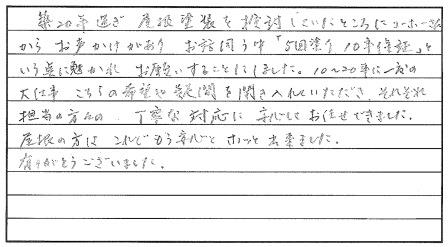 築20年過ぎ 屋根塗装を検討していたところにユーホーさん
からお声かけがあり お話伺う中「5回塗り 10年保証」と
いう点に魅かれ お願いすることにしました。10～20年に一度の
大仕事 こちらの希望や疑問を聞き入れていただき、それぞれ
担当の方々の 丁寧な対応に 安心して お任せできました。
屋根の方は これで もう安心と ホッと出来ました。
有りがとうございました。